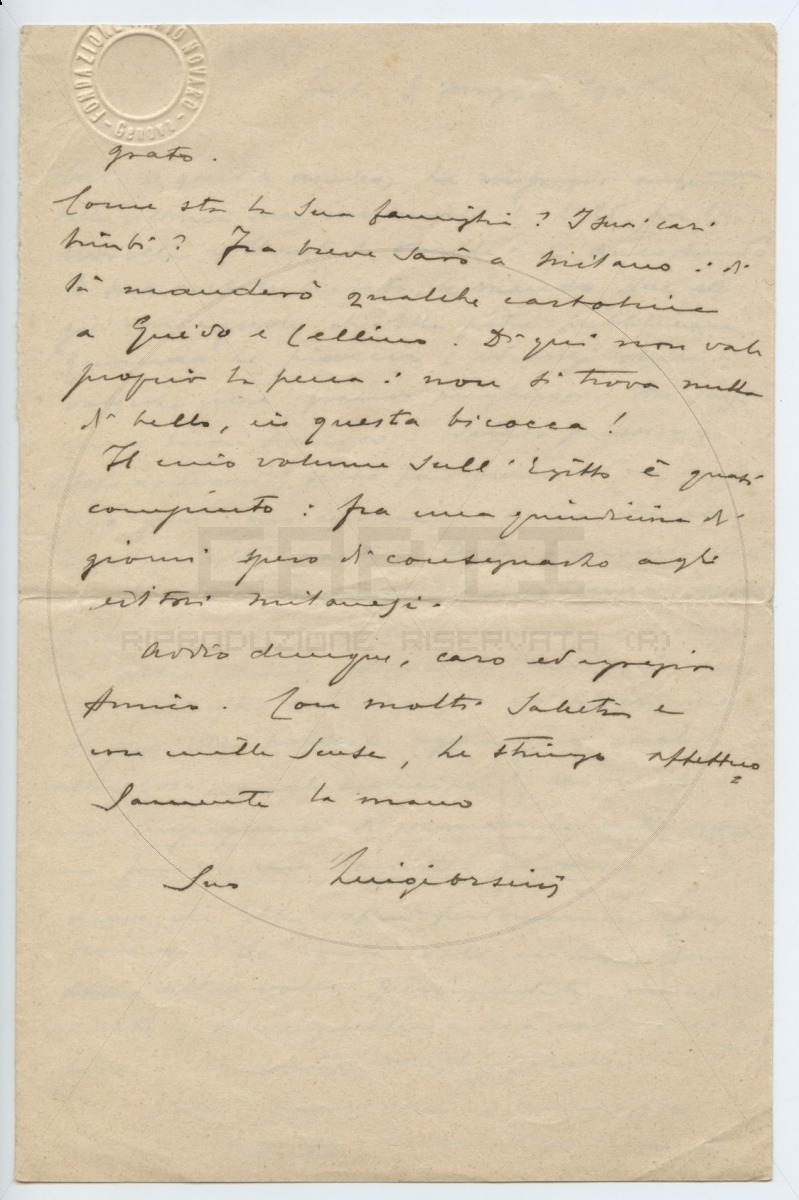 FONDAZIONE MARIO NOVARO - Genova -
grato.
Come sta la Sua famiglia? I suoi cari
bimbi? Fra breve sarò a Milano: di
là manderò qualche cartolina
a Guido e Cellino. Di qui non vale
proprio la pena: non si trova nulla
di bello, in questa bicocca!
Il mio volume sull'Egitto è quasi
compiuto: fra una quindicina di
giorni spero di consegnarlo agli
editori milanesi.
CARTI
RIPRODUZIONE RISERVATA (R)
Addio dunque, caro ed egregio
Amico. Con molti saluti e
con mille scuse, Le stringo affettuo=
samente la mano
Suo Luigi Orsini